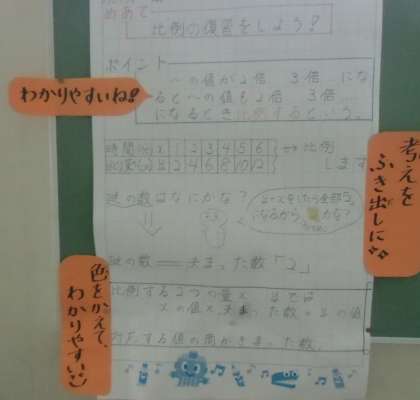 めあて
比例の復習をしよう!
ポイント
〜の値が2倍 3倍…にな
ると〜の値も2倍 3倍…
になるとき比例するという。
わかりやすいね!
時間(分)x 1 2 3 4 5 6 ⇔ 比例
y 2 4 6 8 10 12 します
考えを
ふき出しに
謎の数はなにかな?
になるから かな?
謎の数 決まった数「2」
色をかえて、
わかりやすい
比例する2つの量x yでは
xの値×決まった数=yの値
対応する値の商がきまった数。